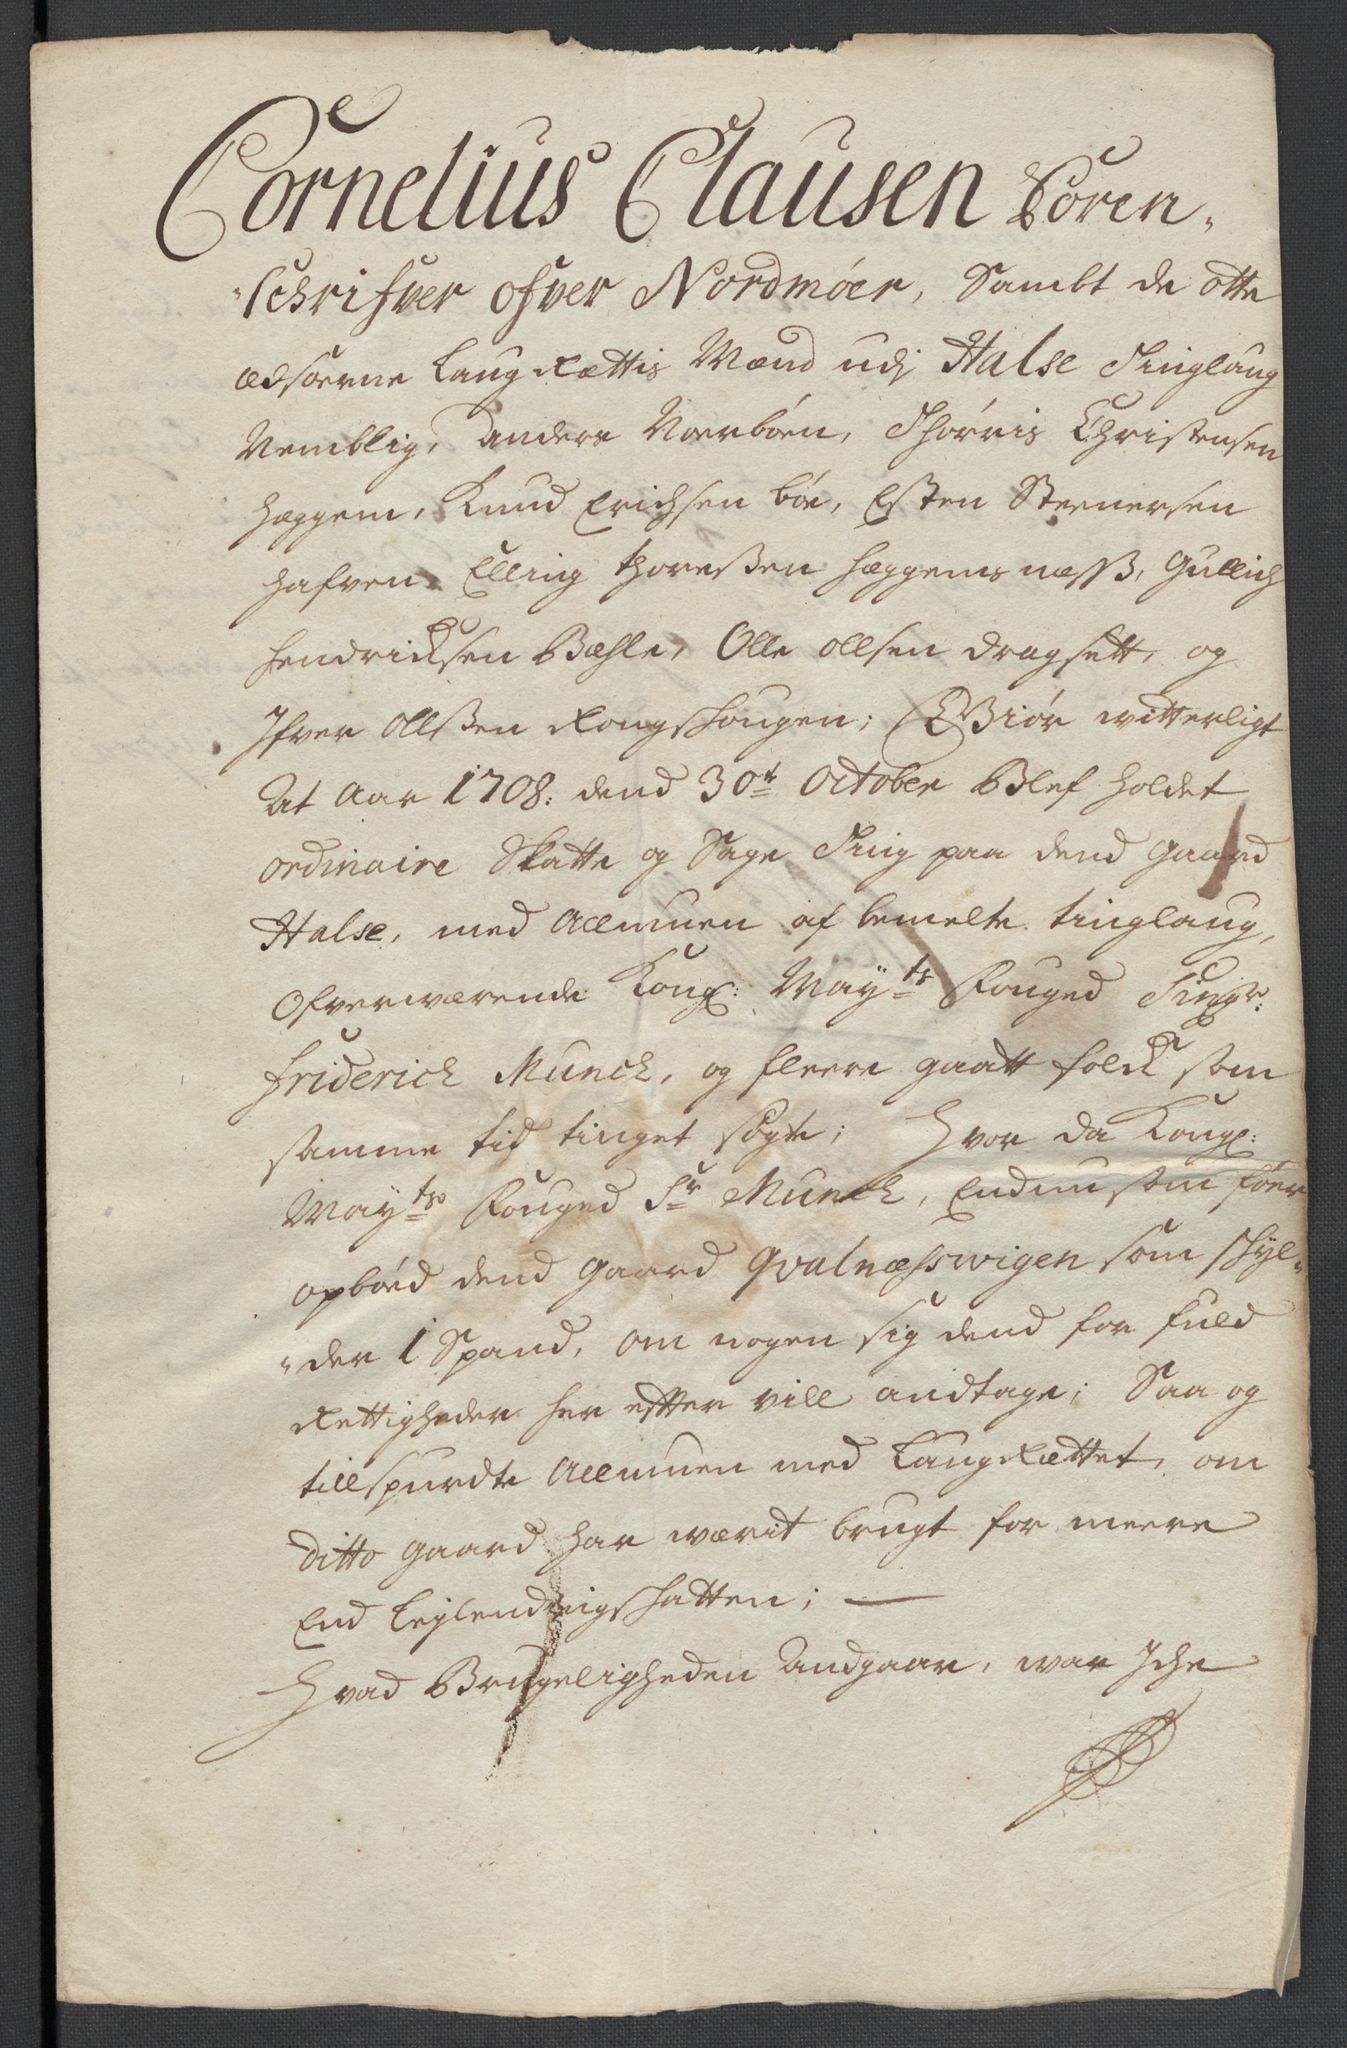 Cornelius Clausen Soren-
schrifver ofver Nordmöer, Sambt de otte
Edsoerne Laug Rettis Mænd udj Halse Tinglaug
Nemblig, Anders Noerböen, Thörris Christensen
Hæggem, Knud Erichsen Böe, Esten Steenersen
Hafven, Elling Thoreßen Hæggemsnæss, Gullich
Hendrichsen Bæhle, Olle Ollsen Dragsett, og
Ifver Ollßen Rongshougen; Giör witterligt
At Aar 1708: dend 30te October Blef holdet
ordinaire Skatte og Sage Ting paa dend Gaard
Halse, med Allmuen af bemelte tinglaug,
Ofverwærende Kongl: Mayts Fouged Singr:
Friderich Munch, og fleere gaatt folck som
samme tid tinget søgte; Hvor da Kongl:
Mayts Fouged Sr Munch, Endnu som föer
opböd dend Gaard Qvalnæsswigen som skyl-
der 1 Spand, om nogen sig dend for fuld
Rettigheder her effter vill andtage; Saa og
tillspurdte Allmuen med LaugRettet, om
ditto gaard har wærit brugt for meere
End Leylendingskatten; —
Hvad Brugeligheden Andgaar, war Iche